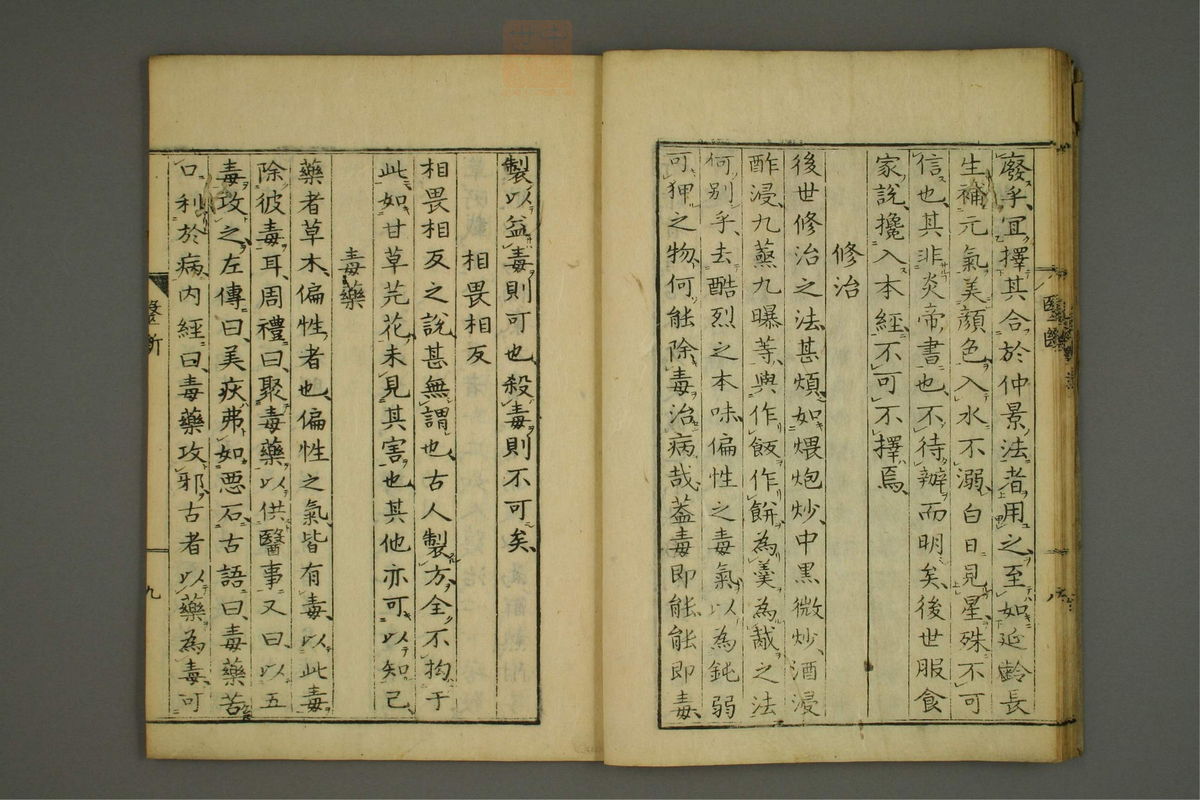 廢乎、宜擇其合於仲景法者用之、至如延齡長
生補元氣、美顏色、入水不溺、白日見星、殊不可
信也、其非炎帝書也、不待辨而明矣、後世服食
家說攙入本經、不可不擇焉、
修治
後世修治之法甚煩、如煨炮炒中黑微炒、酒浸
酢浸、九蒸九曝等、與作飯作餅為羹為胾之法
何別乎、去酷烈之本味偏性之毒氣、以為鈍弱
可狎之物、何能除毒治病哉、蓋毒即能、能即毒、
製以益毒則可也、殺毒則不可矣、
相畏相反
相畏相反之說、甚無謂也、古人製方、全不拘于
此、如甘草芫花、未見其害也、其他亦可以知已
毒藥
藥者草木、偏性者也、偏性之氣、皆有毒、以此毒
除彼毒耳、周禮曰、聚毒藥以供醫事、又曰、以五
毒攻之、左傳曰、美疢弗如惡石、古語曰、毒藥苦
口利於病、內經曰、毒藥攻邪、古者以藥為毒可
醫斷
九